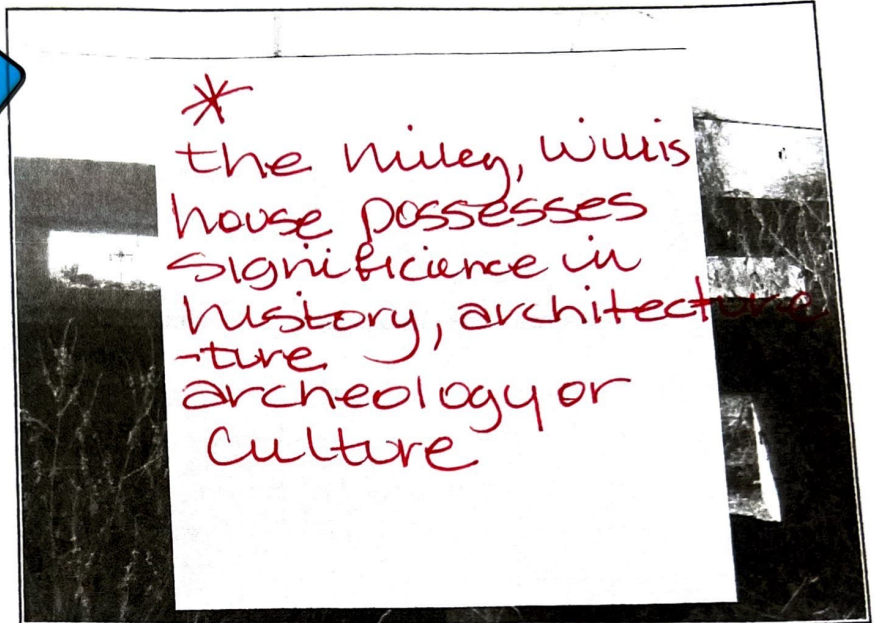 *
the Miley, Willis
house possesses
significance in
history, architecture
-ture
archeology or
culture